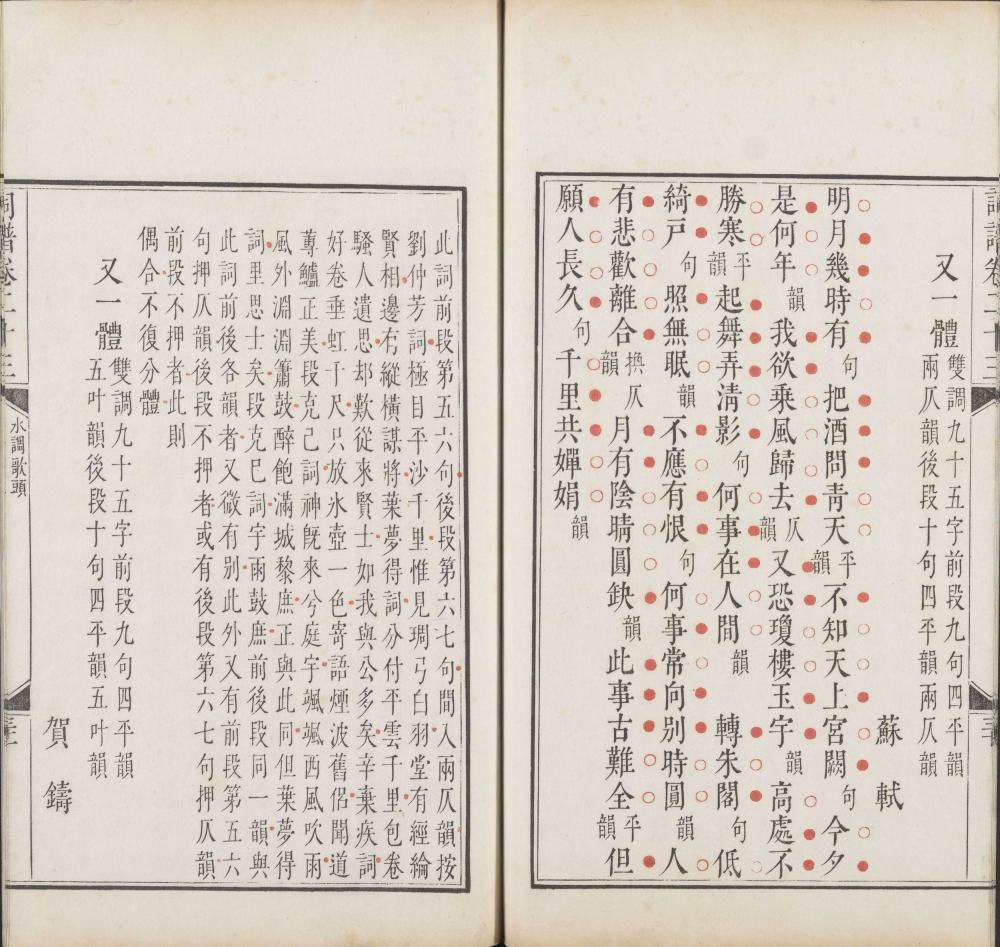 詞譜卷二十三
又一體 雙調九十五字前段九句四平韻
兩仄韻後段十句四平韻兩仄韻
蘇軾
明月幾時有句把酒問青天平韻不知天上宮闕句今夕
是何年韻我欲乘風歸去仄韻又恐瓊樓玉宇韻高處不
勝寒平韻起舞弄清影句何事在人間韻轉朱閣句低
綺戶句照無眠韻不應有恨句何事常向別時圓韻人
有悲歡離合換仄韻月有陰晴圓缺韻此事古難全平韻但
願人長久句千里共嬋娟韻
此詞前段第五六句後段第六七句間入兩仄韻按
劉仲芳詞極目平沙千里惟見琱弓白羽堂有經綸
賢相邊有縱橫謀將葉夢得詞分付平雲千里包卷
騷人遺思却歎從來賢士如我與公多矣辛棄疾詞
好卷垂虹千尺只放氷壺一色寄語煙波舊侶聞道
蓴鱸正美段克己詞神旣來兮庭宇颯颯西風吹雨
風外淵淵簫鼓醉飽滿城黎庶正與此同但葉夢得
詞里思士矣段克巳詞宇雨鼓庶前後段同一韻與
此詞前後各韻者又微有別此外又有前段第五六
句押仄韻後段不押者或有後段第六七句押仄韻
前段不押者此則
偶合不復分體
又一體 雙調九十五字前段九句四平韻
五叶韻後段十句四平韻五叶韻
賀鑄
詞譜卷二十三
水調歌頭